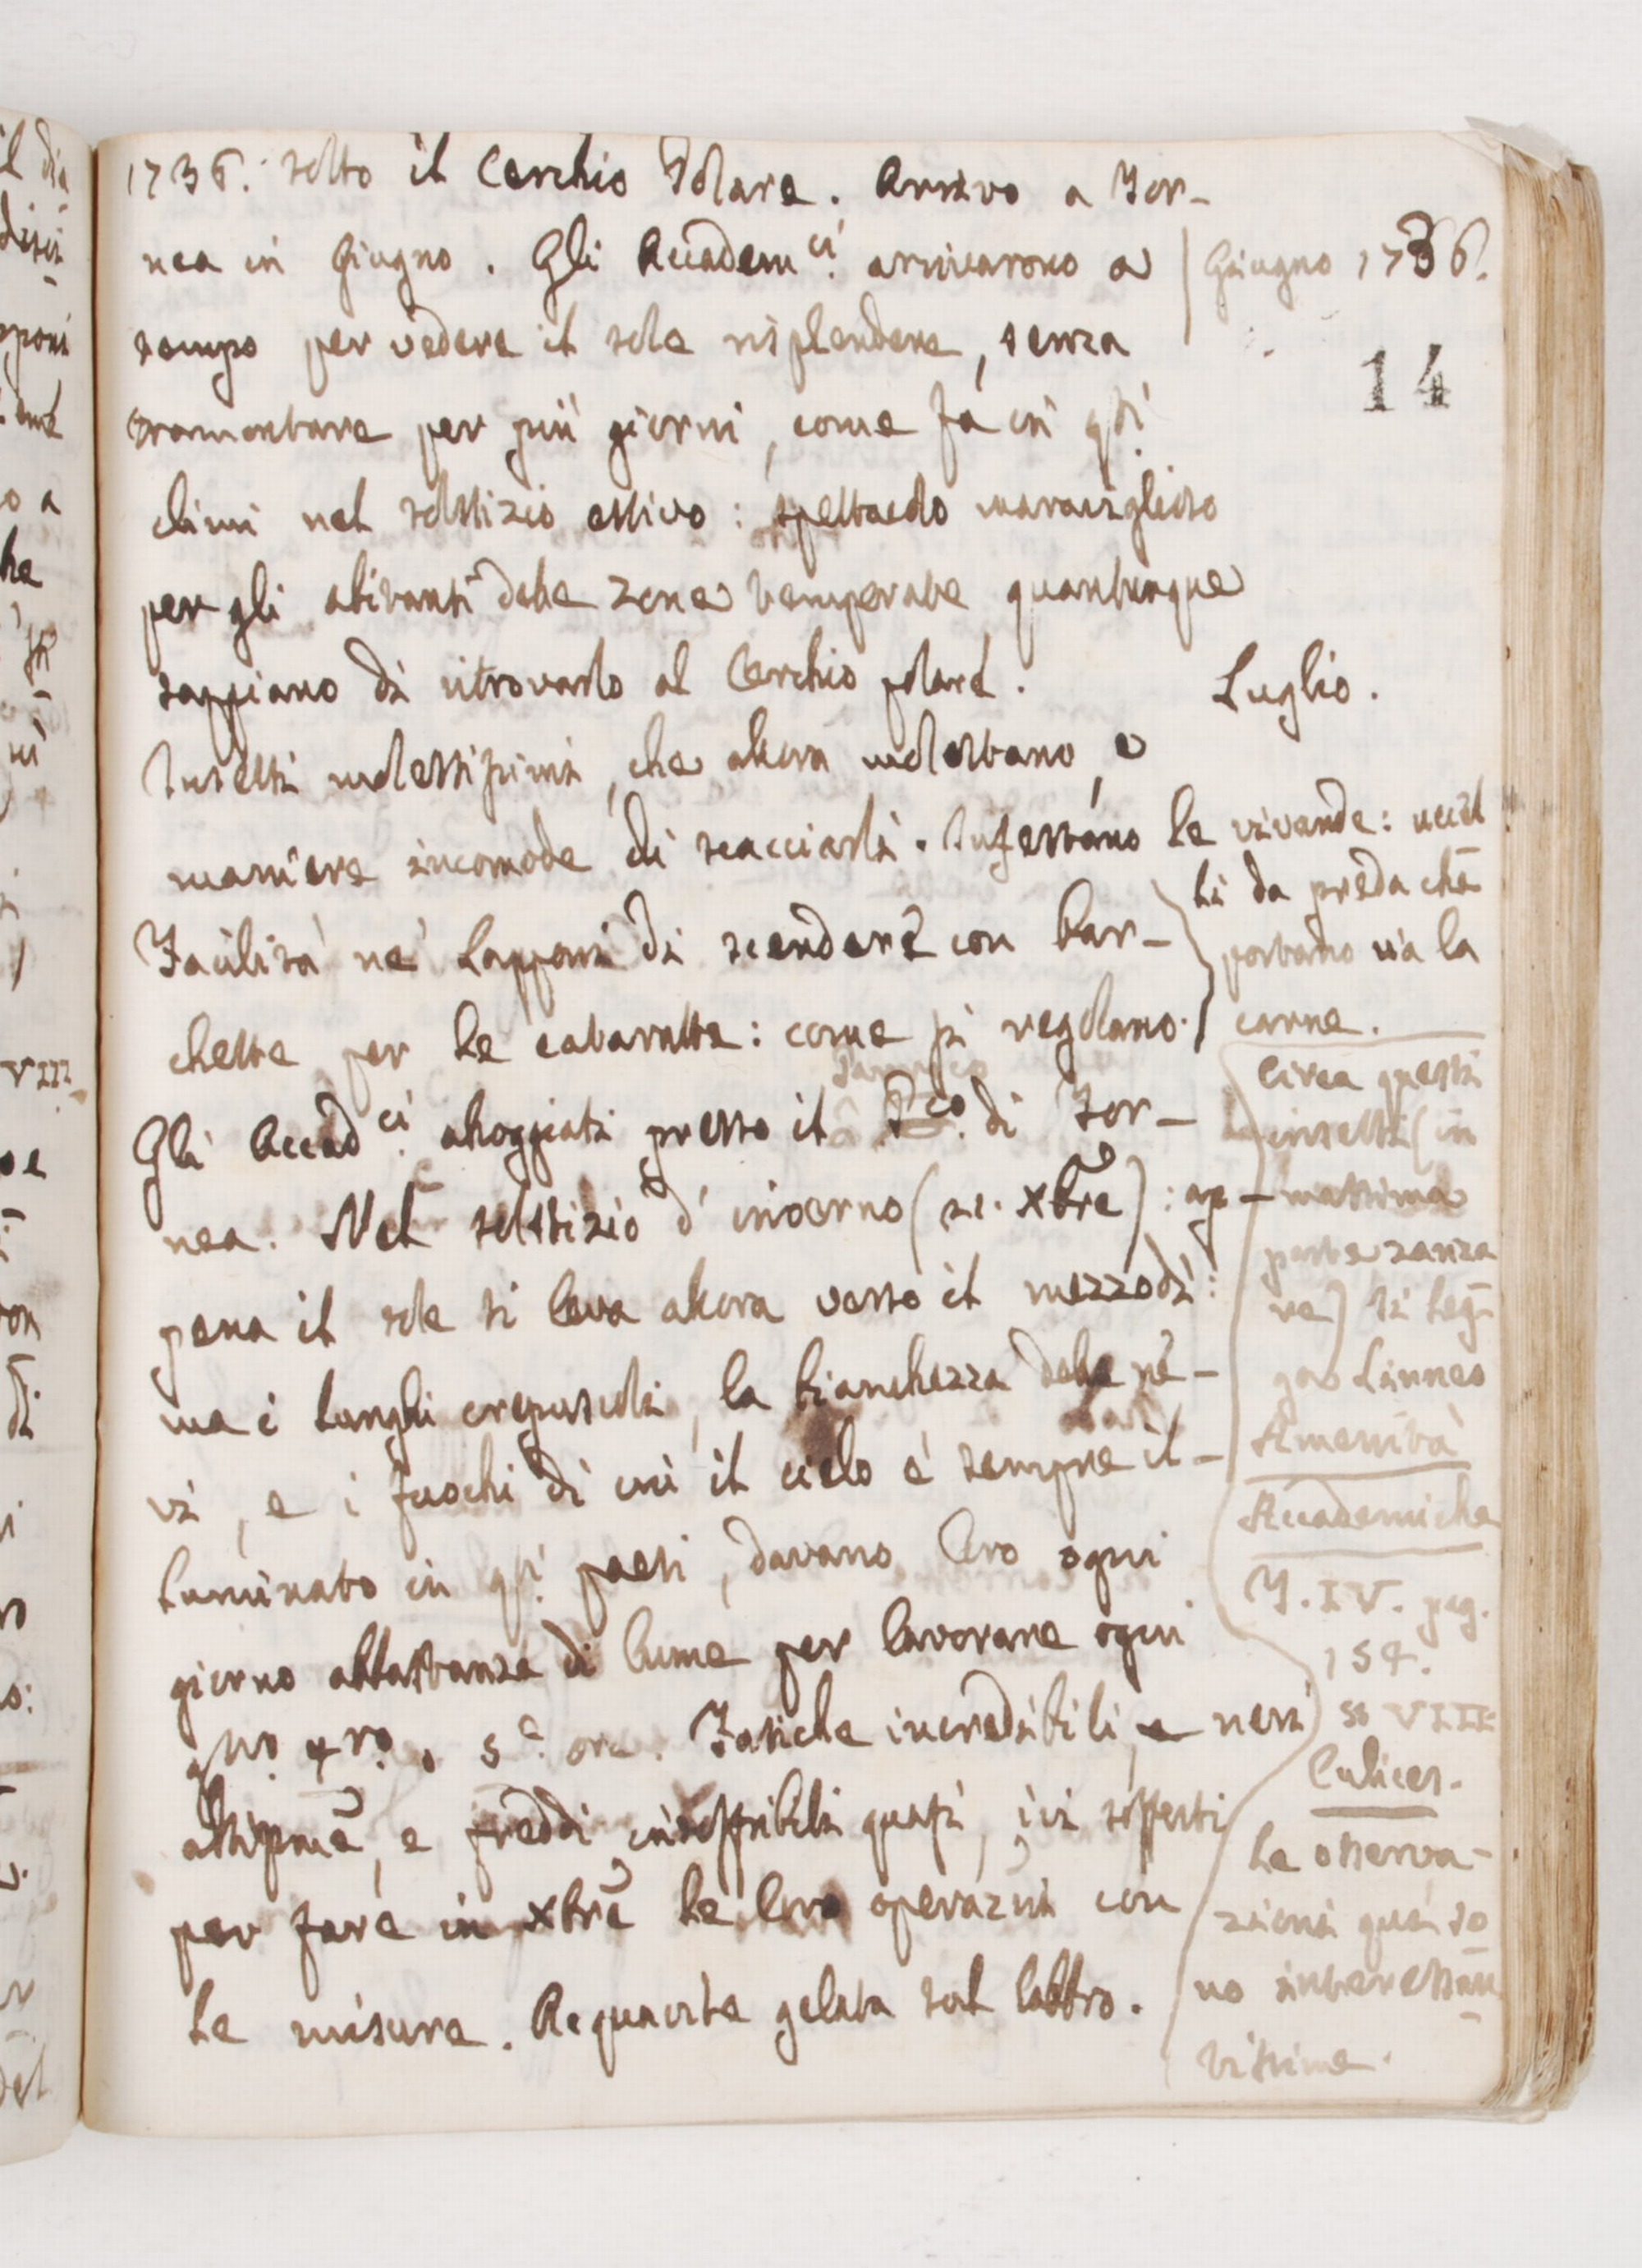 1736. sotto il Cerchio Polare. Arrivo a Tor-
nea in Giugno. Gli Accadem.ci arrivarono a
tempo per vedere il sole risplendere, senza
tramontare per più giorni, come fà in qsti
climi nel solstizio estivo: spettacolo maraviglioso
per gli abitanti delle Zone temperate quantunque
sappiano di ritrovarlo al Cerchio polare.
Insetti molestissimi, che allora molestano, e
maniere incomode di scacciarli. Infestano le vivande: uccel
Facilità ne' Lapponi di scendere con bar-
chette per le cataratte: come si regolano.
Gli Accad.ci alloggiati presso il di Tor-
nea. Nel solstizio d'inverno (21. Xbre): ap-
pena il sole si leva allora verso il mezzodì:
ma i lunghi crepuscoli, la bianchezza delle ne-
vi, e i fuochi di cui il cielo è sempre il-
luminato in qsti paesi, davano loro ogni
giorno abbastanza di lume per lavorare ogni
gno. 4ro. o 5e. ore. Fatiche incredibili, e nevi
altissime, e freddi insoffribili quasi, ivi sofferti
per fare in Xbre le loro operazni con
le misure. Acquavite gelata sul labbro.
Giugno 1736.
14
Luglio.
li da preda che
portano via la
carne.
Circa questi
insetti (in
massima
parte zanza
re) si leg-
ga Linneo
Amenità
Accademiche
T. IV. pag.
154.
§ VIII
Culices.
Le osserva-
zioni quei so
no interessan
tissime.